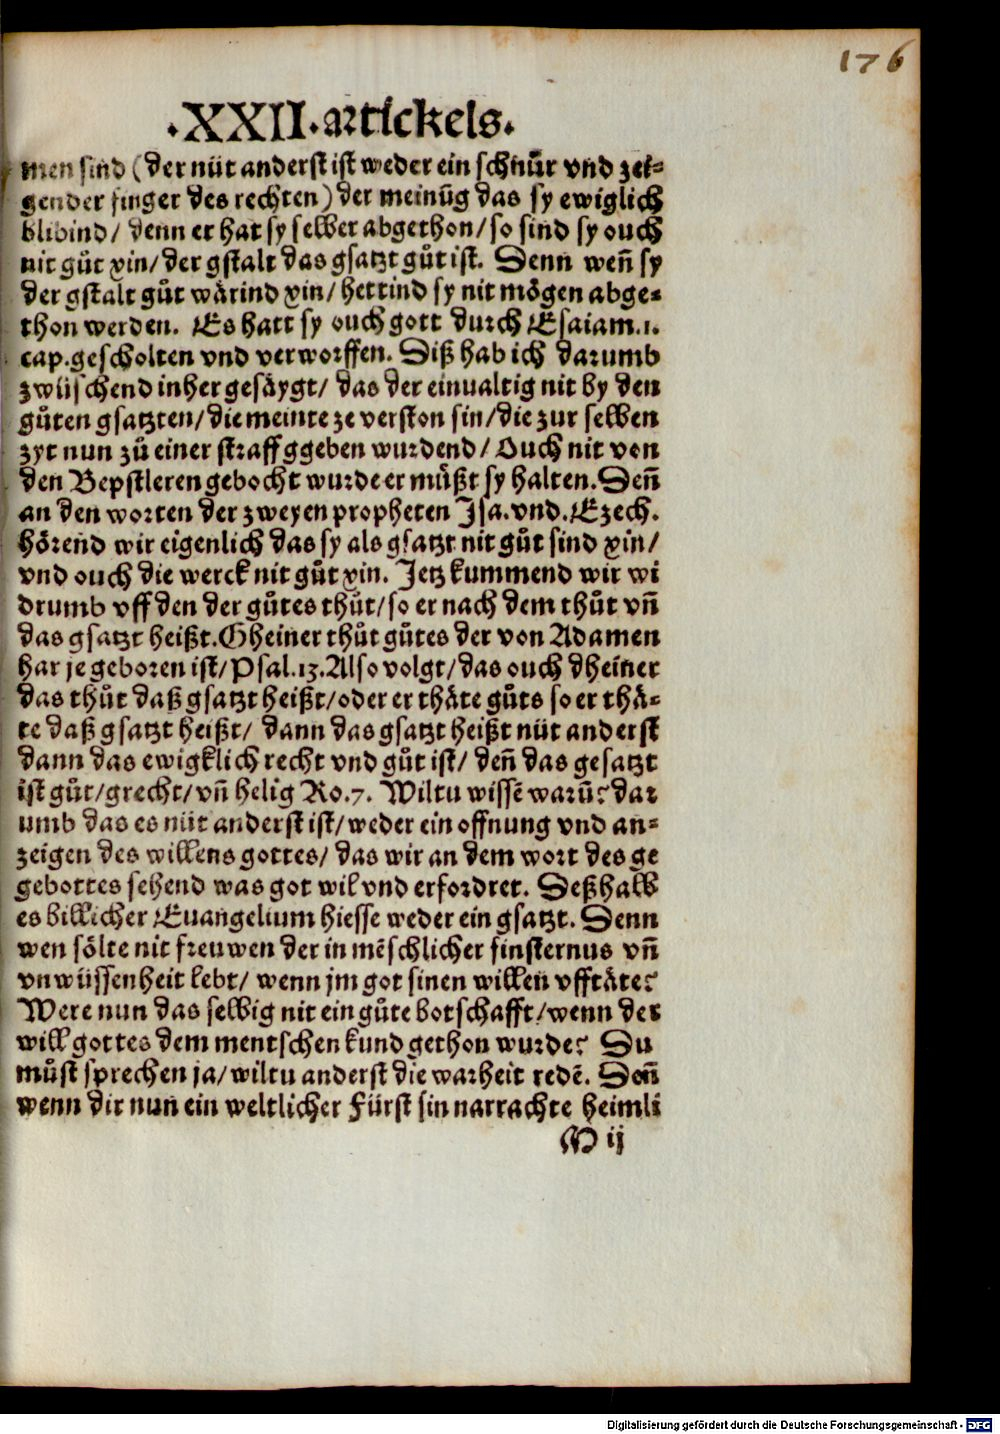 176
.XXII.artickels.
men sind (der nüt anderst ist weder ein schnůr vnd zei-
gender finger des rechten) der meinũg das sy ewiglich
blibind/ denn er hat sy selber abgethon/ so sind sy ouch
nit gůt xin/ der gstalt das gsatzt gůt ist. Denn weñ sy
der gstalt gůt wärind xin/ hettind sy nit mögen abge-
thon werden. Es hatt sy ouch gott durch Esaiam.1.
cap.gescholten vnd verworffen. Diß hab ich darumb
zwüschend inher gesäygt/ das der einualtig nit by den
gůten gsatzten/ die meinte ze verston sin/ die zur selben
zyt nun zů einer straff ggeben wurdend/ Ouch nit von
den Bepstleren gebocht wurde er můßt sy halten. Deñ
an den worten der zweyen propheten Isa.vnd.Ezech.
hörend wir eigenlich das sy als gsatzt nit gůt sind xin/
vnd ouch die werck nit gůt xin. Jetz kummend wir wi
drumb vff den der gůtes thůt/ so er nach dem thůt vñ
das gsatzt heißt. Gheiner thůt gůtes der von Adamen
har je geboren ist/ Psal.13. Also volgt/ das ouch dheiner
das thůt daß gsatzt heißt/ oder er thäte gůts so er thä-
te daß gsatzt heißt/ dann das gsatzt heißt nüt anderst
dann das ewigklich recht vnd gůt ist/ deñ das gesatzt
ist gůt/ grecht/ vñ helig Ro.7. Wiltu wissẽ warũ? dar
umb das es nüt anderst ist/ weder ein offnung vnd an-
zeigen des willens gottes/ das wir an dem wort des ge
gebottes sehend was got wil vnd erfordret. Deßhalb
es billicher Euangelium hiesse weder ein gsatzt. Denn
wen sölte nit freuwen der in mẽschlicher finsternus vñ
vnwüssenheit lebt/ wenn jm got sinen willen vfftäte?
Were nun das selbig nit ein gůte botschafft/ wenn der
will gottes dem mentschen kund gethon wurde? Du
můst sprechen ja/ wiltu anderst die warheit redẽ. Deñ
wenn dir nun ein weltlicher Fürst sin narrachte heimli
M ij
Digitalisierung gefördert durch die Deutsche Forschungsgemeinschaft - DFG